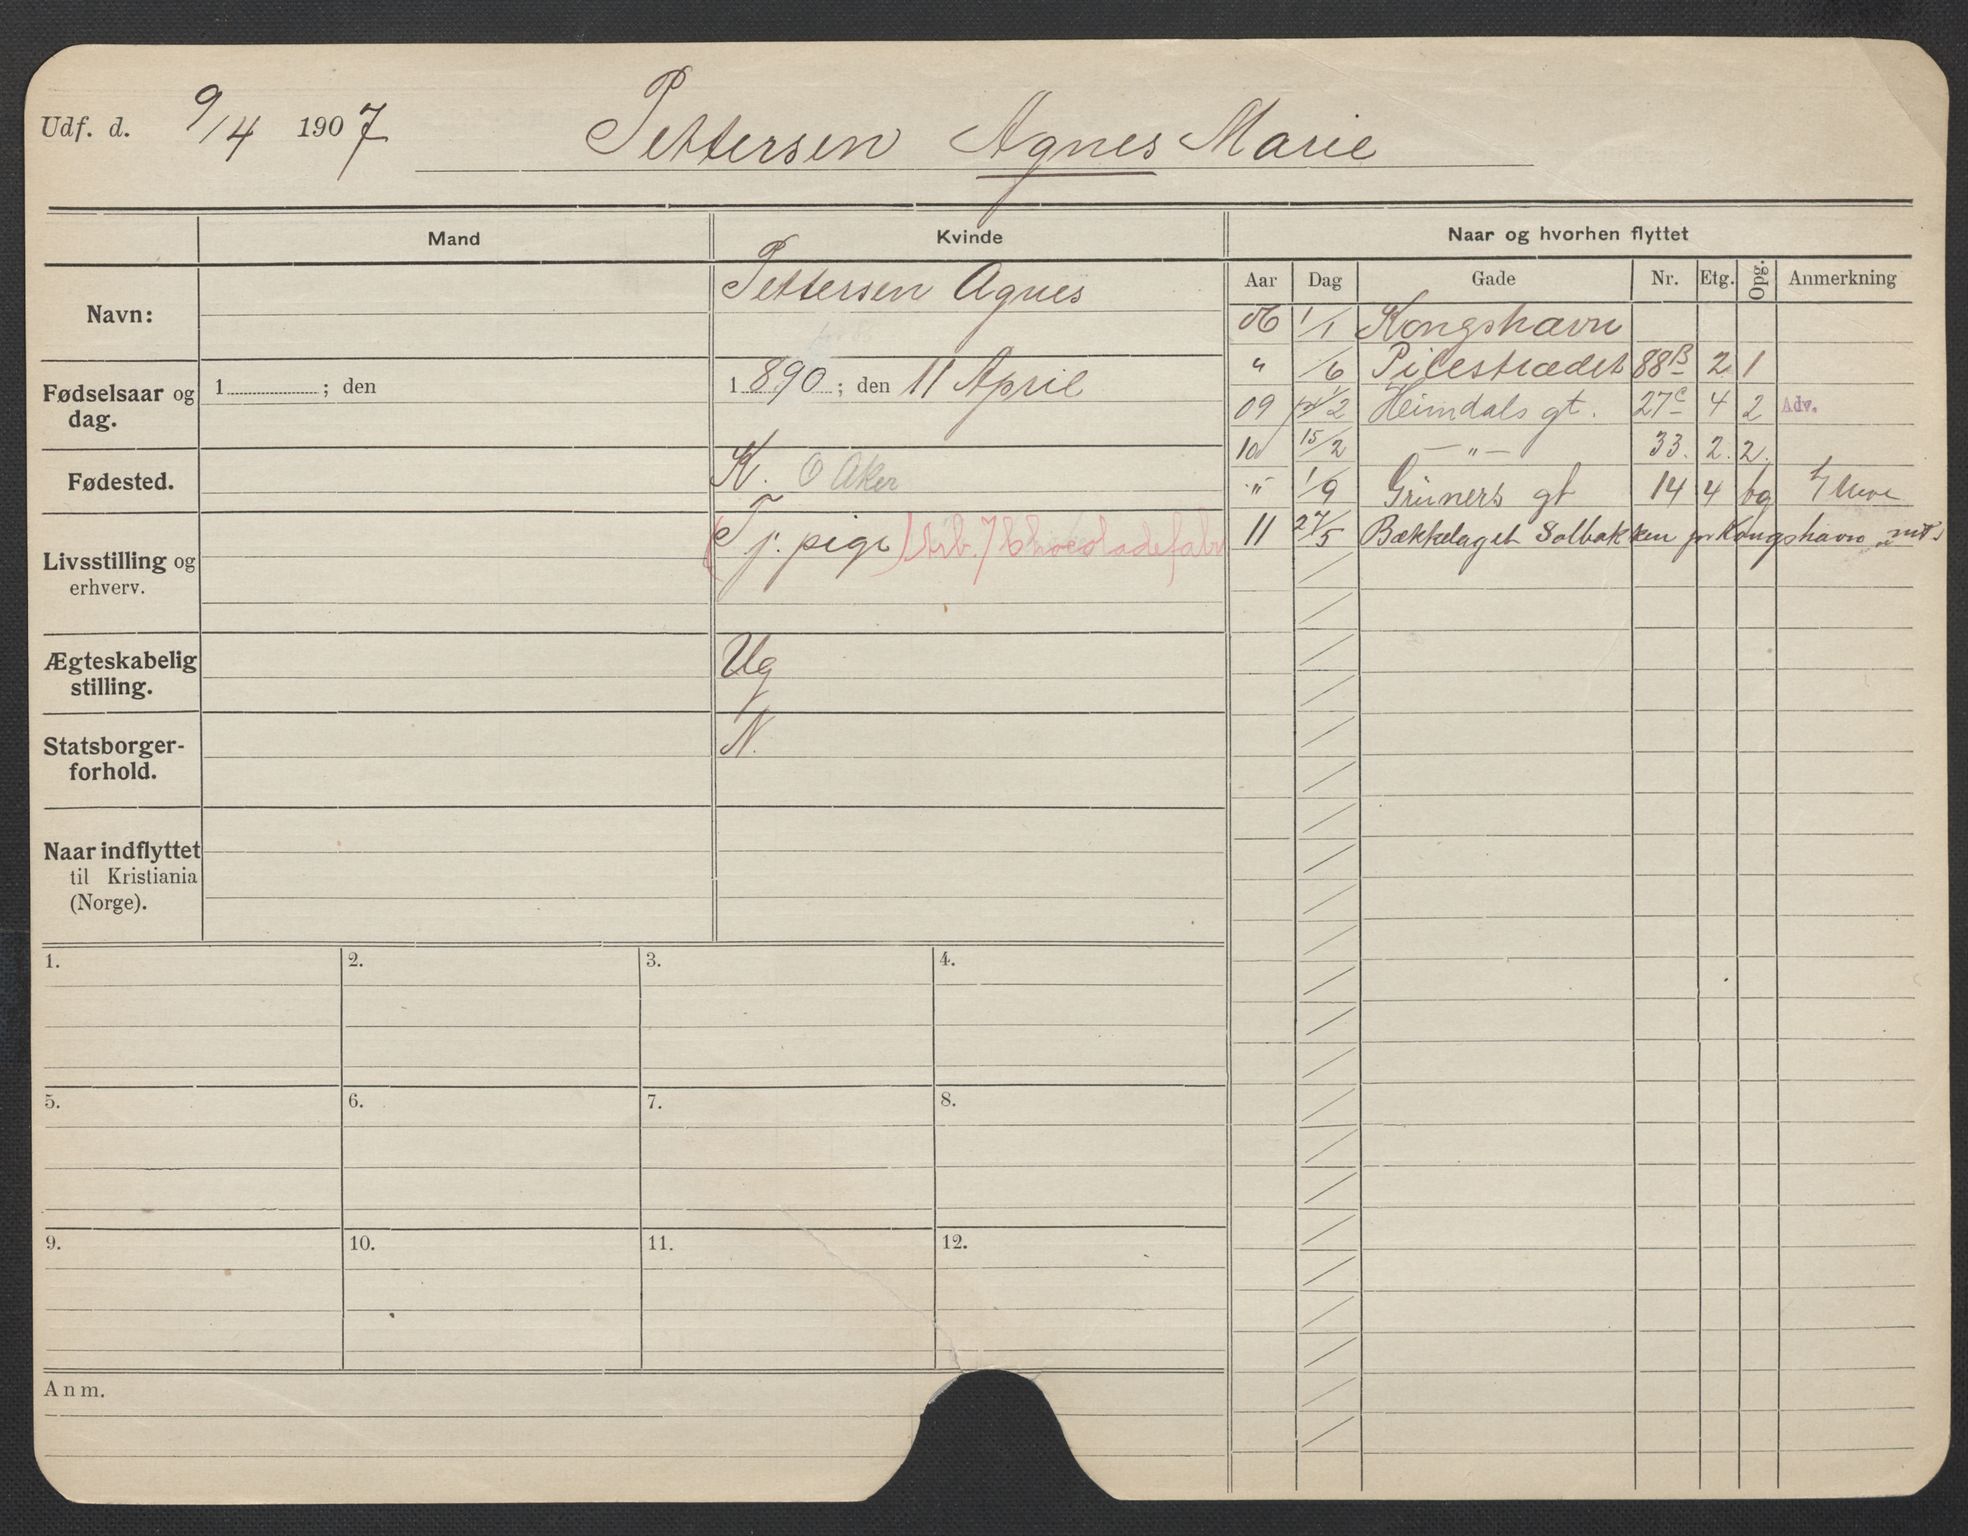 Udf. d. 9/4 1907 Pettersen Agnes Marie
Mand Kvinde Naar og hvorhen flyttet
Navn: Pettersen Agnes
Fødselsaar og dag. 1 ; den 1890 ; den 11 April
Fødested. K. O Aker
Livsstilling og erhverv. (Tj. pige) Arb. / Chocoladefabr
Ægteskabelig stilling. Ug
Statsborgerforhold. N.
Naar indflyttet til Kristiania (Norge).
Aar Dag Gade Nr. Etg. Opg. Anmerkning
06 1/1 Kongshavn
" /6 Pilestrædet 88B 2 1
09 1/2 Heimdals gt. 27c 4 2 Adv.
10 15/2 — " — 33. 2. 2.
" 1/9 Grüners gt 14 4 bg
11 27/5 Bækkelaget Solbakken pr Kongshavn
1. 2. 3. 4.
5. 6. 7. 8.
9. 10. 11. 12.
Anm.